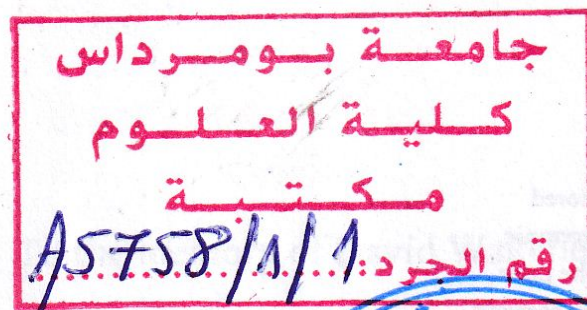 جامعة بومرداس
كلية العلوم
مكتبة
رقم الجرد: A5758/1/1